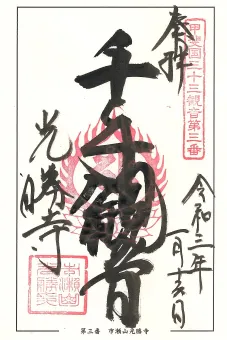 奉拝
甲斐国三十三観音第三番
千手観音
令和三年
一月吉日
光勝寺
第三番 市瀬山光勝寺